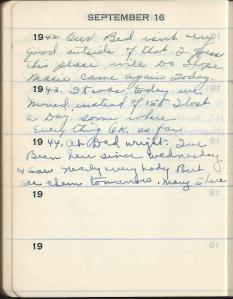 SEPTEMBER 16
1942 Our Bed isn't very
good outside of that I guess
this place will do. Hope
Marie came again today.
1943. It was today we
moved instead of 15th I lost
a Day some where
Every thing OK. so far
1944. At Dad Wright. I've
Been here since Wednesday
& saw nearly every body But
see them tomorrow. Mary is here
19
19